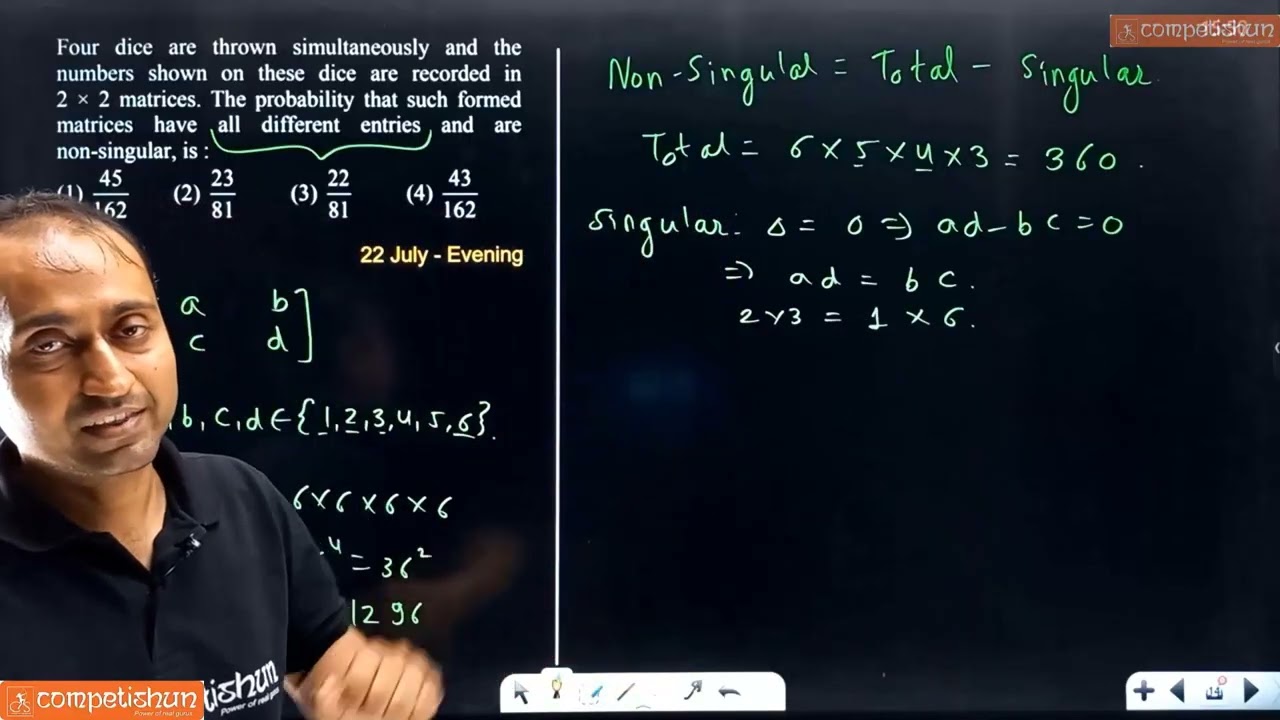 Four dice are thrown simultaneously and the
numbers shown on these dice are recorded in
2 × 2 matrices. The probability that such formed
matrices have all different entries and are
non-singular, is :
45/162 (2) 23/81 (3) 22/81 (4) 43/162
22 July - Evening
a b]
c d
b, c, d ∈ {1, 2, 3, 4, 5, 6}.
6 × 6 × 6 × 6
4 = 36²
1296
Non-Singular = Total - Singular
Total = 6 × 5 × 4 × 3 = 360.
Singular: Δ = 0 ⇒ ad - bc = 0
⇒ ad = bc.
2 × 3 = 1 × 6.
competishun
Power of real gurus
competishun
Power of real gurus
tishun
Power of real gurus